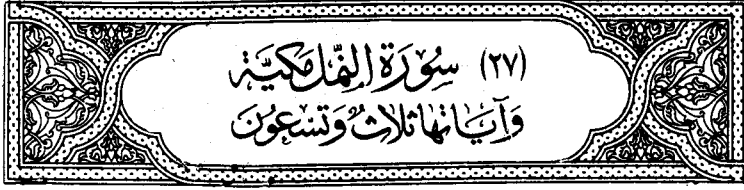 (٢٧) سُورَة النَّمْل مَكيَّة
وَآيَاتهَا ثَلاثٌ وَتِسْعُونَ